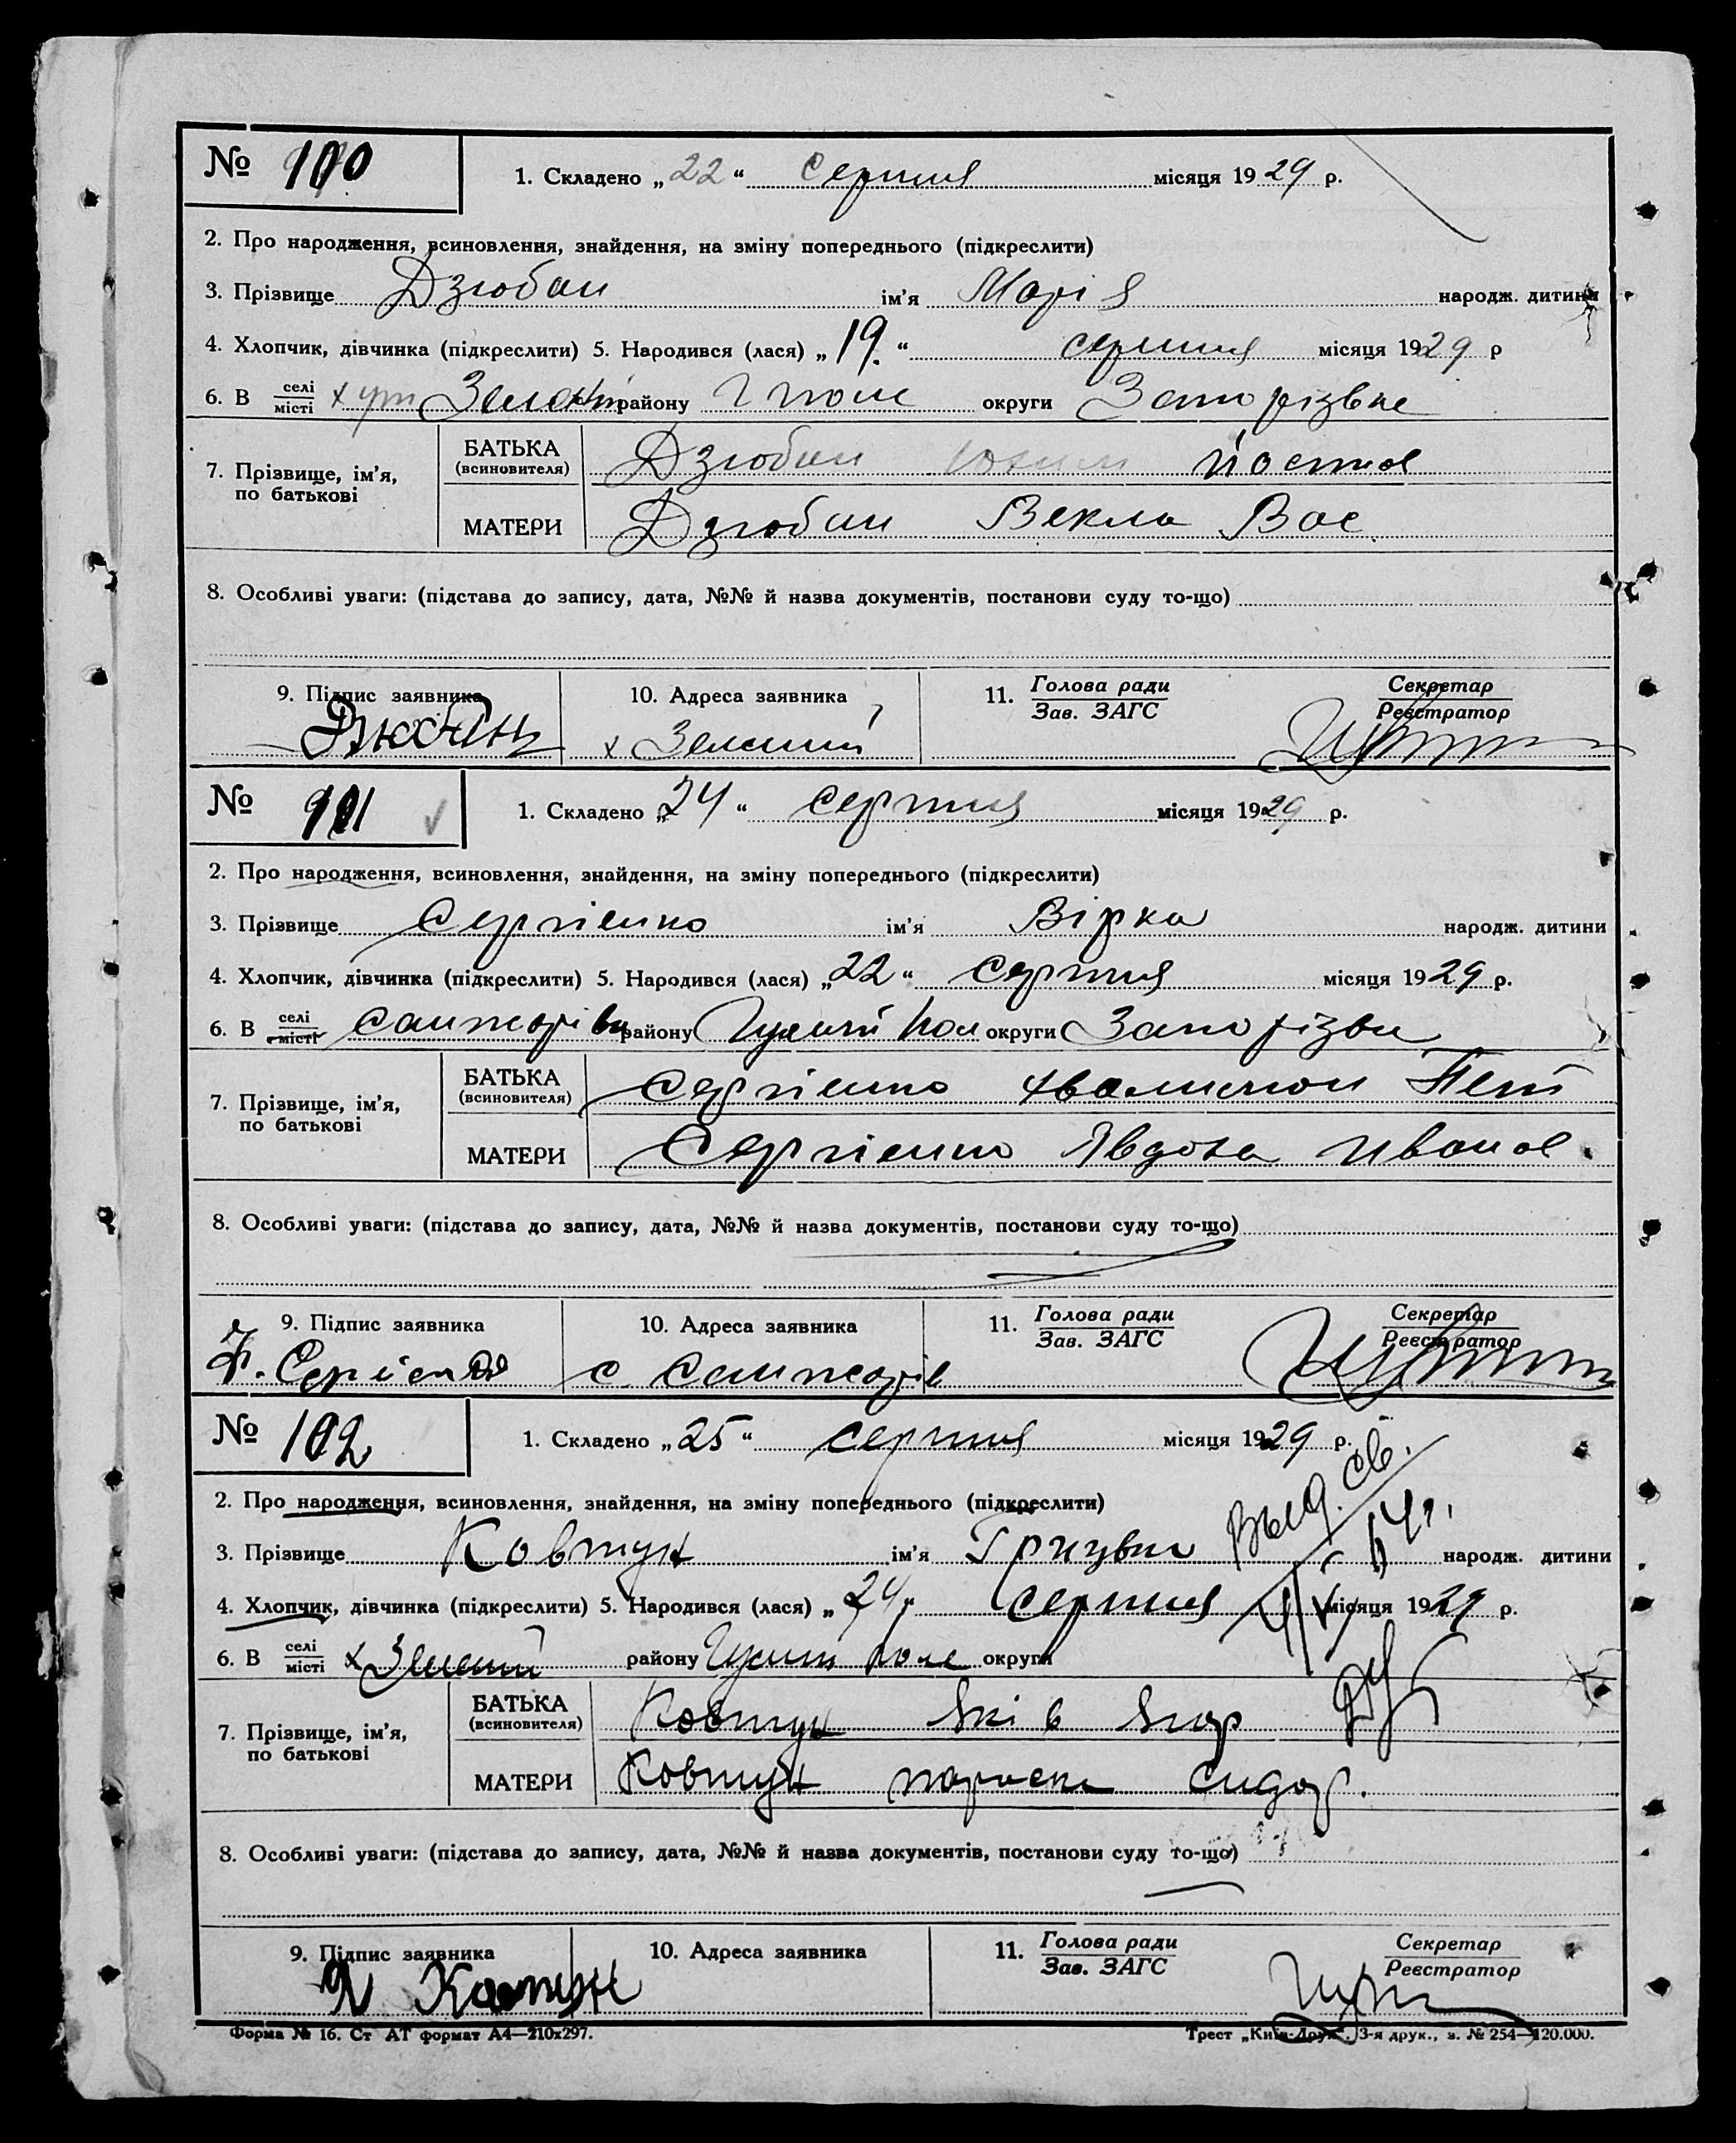 № 100
1. Складено „22“ серпня місяця 1929 р.
2. Про народження, всиновлення, знайдення, на зміну попереднього (підкреслити)
3. Прізвище Дзюбан ім'я Марія народж. дитини
4. Хлопчик, дівчинка (підкреслити) 5. Народився (лася) „19.“ серпня місяця 1929 р
6. В селі/місті хут Зелений району Г поле округи Запорізьке
7. Прізвище, ім'я, по батькові
БАТЬКА (всиновителя) Дзюбан
МАТЕРИ Дзюбан Векла Вас.
8. Особливі уваги: (підстава до запису, дата, №№ й назва документів, постанови суду то-що)
9. Підпис заявника
10. Адреса заявника
11. Голова ради / Зав. ЗАГС
Секретар / Реєстратор
х Зелений
№ 101
1. Складено „24“ серпня місяця 1929 р.
2. Про народження, всиновлення, знайдення, на зміну попереднього (підкреслити)
3. Прізвище Сергієнко ім'я Вірка народж. дитини
4. Хлопчик, дівчинка (підкреслити) 5. Народився (лася) „22“ серпня місяця 1929 р.
6. В селі/місті Санжарівка району Гуляй Пол округи Запорізьк
7. Прізвище, ім'я, по батькові
БАТЬКА (всиновителя) Сергієнко Пет
МАТЕРИ Сергієнко Явдоха Иванов.
8. Особливі уваги: (підстава до запису, дата, №№ й назва документів, постанови суду то-що)
9. Підпис заявника
10. Адреса заявника
11. Голова ради / Зав. ЗАГС
Секретар / Реєстратор
с. Санжарів
№ 102
1. Складено „25“ серпня місяця 1929 р.
2. Про народження, всиновлення, знайдення, на зміну попереднього (підкреслити)
Выд. св.
3. Прізвище Ковтун ім'я народж. дитини
4. Хлопчик, дівчинка (підкреслити) 5. Народився (лася) „24“ серпня місяця 1929 р.
6. В селі/місті х Зелений району Гуляй поле округи
7. Прізвище, ім'я, по батькові
БАТЬКА (всиновителя) Ковтун Яків Ягор
МАТЕРИ Ковтун параска Сидор.
8. Особливі уваги: (підстава до запису, дата, №№ й назва документів, постанови суду то-що)
9. Підпис заявника
10. Адреса заявника
11. Голова ради / Зав. ЗАГС
Секретар / Реєстратор
Я Ковтун
Форма № 16. Ст АТ формат А4—210x297.
Трест „Київ-Друк“. 3-я друк., з. № 254—120.000.